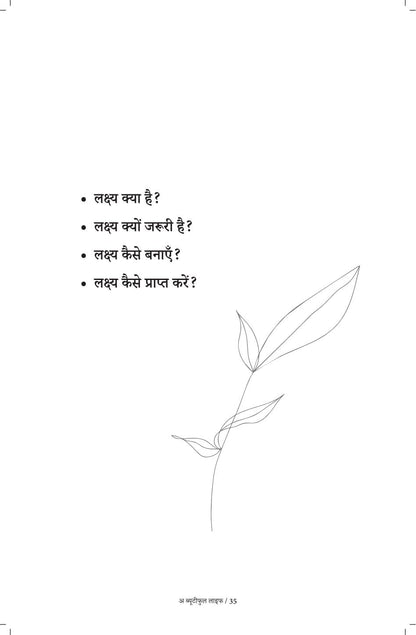 • लक्ष्य क्या है?
• लक्ष्य क्यों जरूरी है?
• लक्ष्य कैसे बनाएँ?
• लक्ष्य कैसे प्राप्त करें?
अ ब्यूटीफुल लाइफ / 35